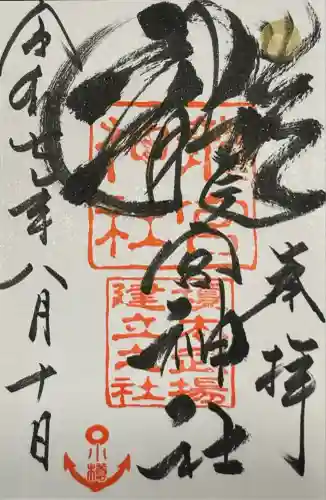 奉拝
龍宮神社
令和 年八月十日
龍宮
神社
榎本武揚
建立之社
小樽